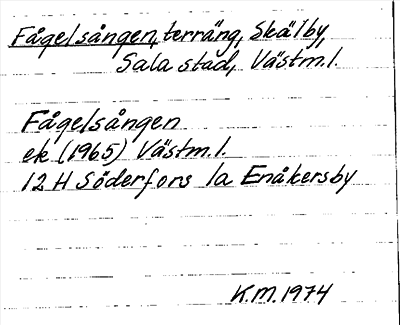 Fågelsången, terräng, Skälby,
Sala stad, Västm.l.
Fågelsången
ek (1965) Västm.l.
12 H Söderfors 1a Enåkersby
K.M. 1974